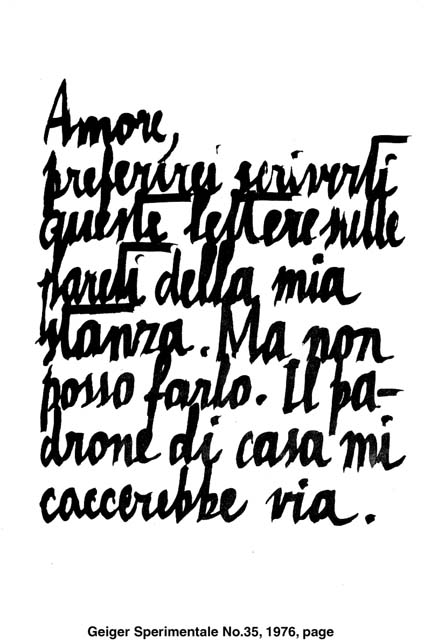 Amore,
preferirei scriverti
queste lettere nelle
pareti della mia
stanza. Ma non
posso farlo. Il pa-
drone di casa mi
caccerebbe via.
Geiger Sperimentale No.35, 1976, page